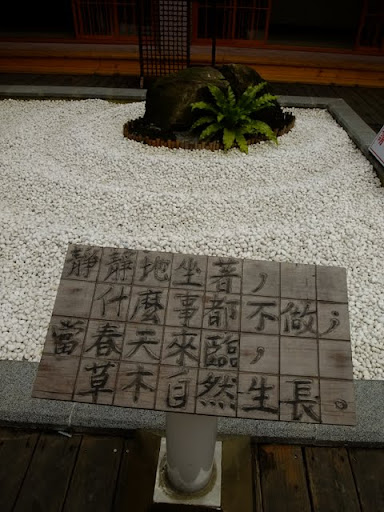 靜靜地坐著，
什麼事都不做；
當春天來臨，
草木自然生長。